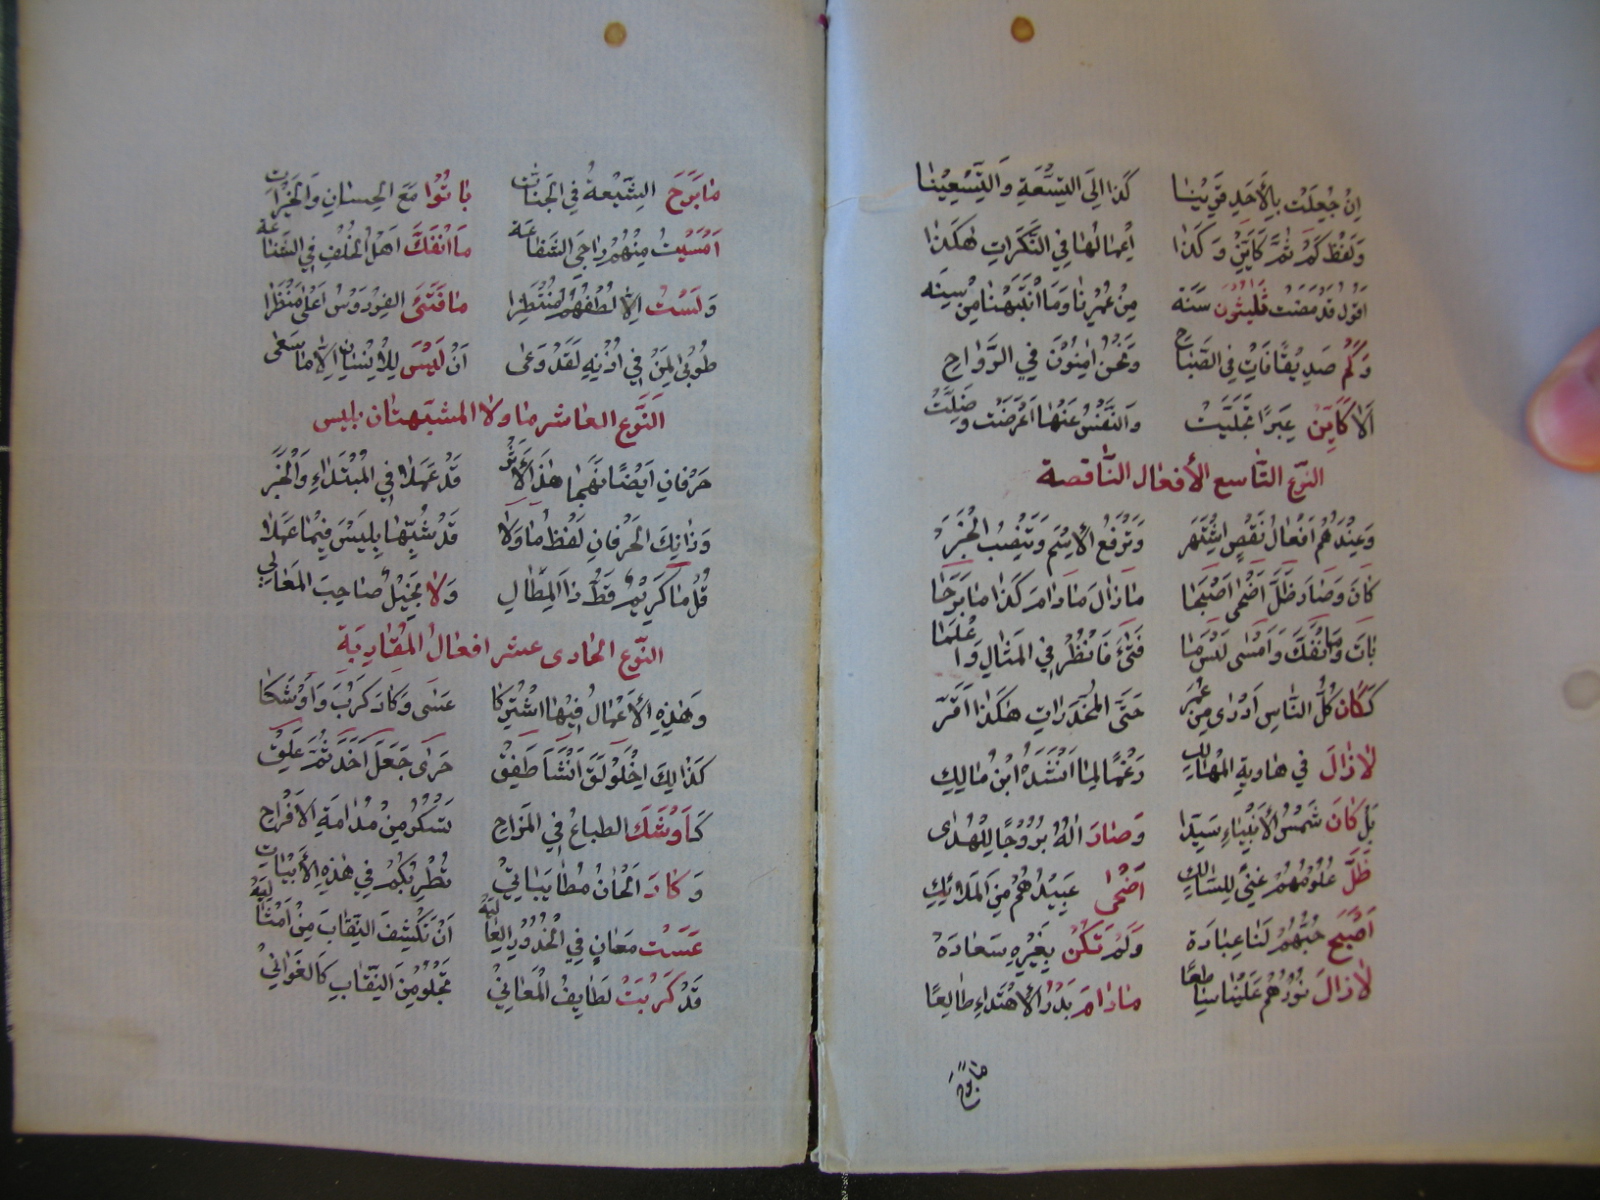 اِنْ جُعِلَتْ بِالْأَحَدِ قَرِينًا كَذَا اِلَى التِّسْعَةِ وَالتِّسْعِينَا
وَلَفْظُ كَمْ ثُمَّ كَاَيِّنْ وَكَذَا اِعْمَالُهَا فِي النَّكَرَاتِ هٰكَذَا
اَقُولُ قَدْ مَضَتْ ثَلٰثُونَ سَنَه مِنْ عُمْرِنَا وَمَا انْتَبَهْنَا مِنْ سِنَه
وَكَمْ صَدِيقًا فَاتَ فِي الصَّبَاحِ وَنَحْنُ اٰمِنُونَ فِي الرَّوَاحِ
اَلَا كَاَيِّنْ عِبَرًا تَجَلَّيَتْ وَالنَّفْسُ عَنْهَا اَعْرَضَتْ وَضَلَّتْ
النوع التاسع الأفعال الناقصة
وَعِنْدَهُمْ اَفْعَالُ نَقْصٍ اشْتَهَر وَتَرْفَعُ الْاِسْمَ وَتَنْصِبُ الْخَبَر
كَانَ وَصَارَ ظَلَّ اَضْحٰى اَصْبَحَا مَا زَالَ مَا دَامَ كَذَا مَا بَرَحَا
بَاتَ وَمَا انْفَكَّ وَاَمْسٰى لَيْسَ مَا فَتِئَ فَانْظُرْ فِي الْمِثَالِ وَاعْلَمَا
كَكَانَ كُلُّ النَّاسِ اَدْرٰى مِنْ عُمَر حَتَّى الْمُخَدَّرَاتِ هٰكَذَا اَقَرّ
لَا زَالَ فِي هَاوِيَةِ الْمَهَالِكِ رَغْمًا لِمَا اَنْشَدَهُ ابْنُ مَالِكِ
بَلْ كَانَ شَمْسُ الْأَنْبِيَاءِ سَيِّدَا وَصَارَ اٰلُهُ بُرُوجًا لِلْهُدٰى
ظَلَّ عُلُومُهُمْ غِنًى لِلسَّالِكِ اَضْحٰى عَبِيدُهُمْ مِنَ الْمَلَائِكِ
اَصْبَحَ حُبُّهُمْ لَنَا عِبَادَة وَلَمْ تَكُنْ بِغَيْرِهِ سَعَادَة
لَا زَالَ نُورُهُمْ عَلَيْنَا سَاطِعًا مَا دَامَ بَدْرُ الْاِهْتِدَاءِ طَالِعًا
مَا بَرَحَ
مَا بَرَحَ الشِّيعَةُ فِي الْجَنَّاتِ بَاتُوا مَعَ الْحِسَانِ وَالْخَيْرَاتِ
اَمْسَيْتُ مِنْهُمْ رَاجِيَ الشَّفَاعَة مَا انْفَكَّ اَهْلُ الْخُلْفِ فِي الشَّنَاعَة
وَلَسْتُ اِلَّا لُطْفَهُمْ مُنْتَظِرَا مَا فَتِئَ الْفِرْدَوْسُ اَعْلٰى مَنْظَرَا
طُوبٰى لِمَنْ فِي اُذْنِهِ لَقَدْ وَعٰى اَنْ لَيْسَ لِلْاِنْسَانِ اِلَّا مَا سَعٰى
النَّوع العاشر ما ولا المشبهتان بليس
حَرْفَانِ اَيْضًا نَمَّهُمَا هٰذَا الْأَثَر قَدْ عَمِلَا فِي الْمُبْتَدَاءِ وَالْخَبَر
وَذَانِكَ الْحَرْفَانِ لَفْظُ مَا وَلَا قَدْ شُبِّهَا بِلَيْسَ فِيمَا عَمِلَا
قُلْ مَا كَرِيمٌ قَطُّ ذَا الْمِطَالِ وَلَا بَخِيلٌ صَاحِبَ الْمَعَالِي
النَّوع الحادى عشر افعال المقاربة
وَهٰذِهِ الْأَعْمَالُ فِيهَا اشْتَرَكَا عَسٰى وَكَادَ كَرُبَ وَاَوْشَكَا
كَذَالِكَ اخْلَوْلَقَ اَنْشَأَ طَفِقْ حَرٰى جَعَلَ اَخَذَ ثُمَّ عَلِقْ
كَأَوْشَكَ الطِّبَاعُ فِي الْمَزَاحِ تَسْكُرُ مِنْ مُدَامَةِ الْاَفْرَاحِ
وَكَادَ اَلْحَانُ مُطَايَبَاتِي تُطْرِبُكُمْ فِي هٰذِهِ الْأَبْيَاتِ
عَسَتْ مَعَانٍ فِي الْخُدُورِ الْعَالِيَة اَنْ تَكْشِفَ النِّقَابَ مِنْ اَمْثَالِيَة
قَدْ كَرُبَتْ لَطَايِفُ الْمَعَانِيْ تَجْلُو مِنَ النِّقَابِ كَالْغَوَانِيْ